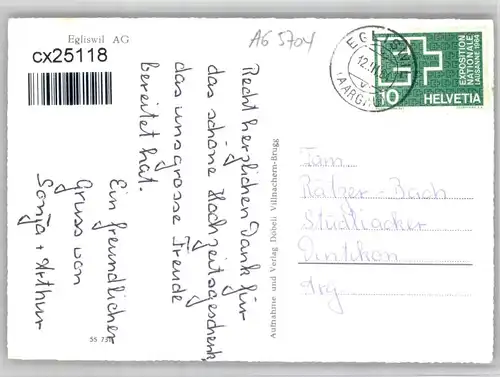 Egliswil AG
cx25118
AG 5704
Recht herzlichen Dank für
das schöne Hochzeitsgeschenk,
das uns grosse Freude
bereitet hat.
Ein freundlicher
Gruss von
Sonja + Arthur
55 73
Aufnahme und Verlag Döbeli Villnachern-Brugg
EGLISWIL
12.III.6
(AARGAU)
EXPOSITION
NATIONALE
LAUSANNE 1964
10 HELVETIA
Fam
Rätzer-Bach
Stüdliacker
Dintikon
Arg